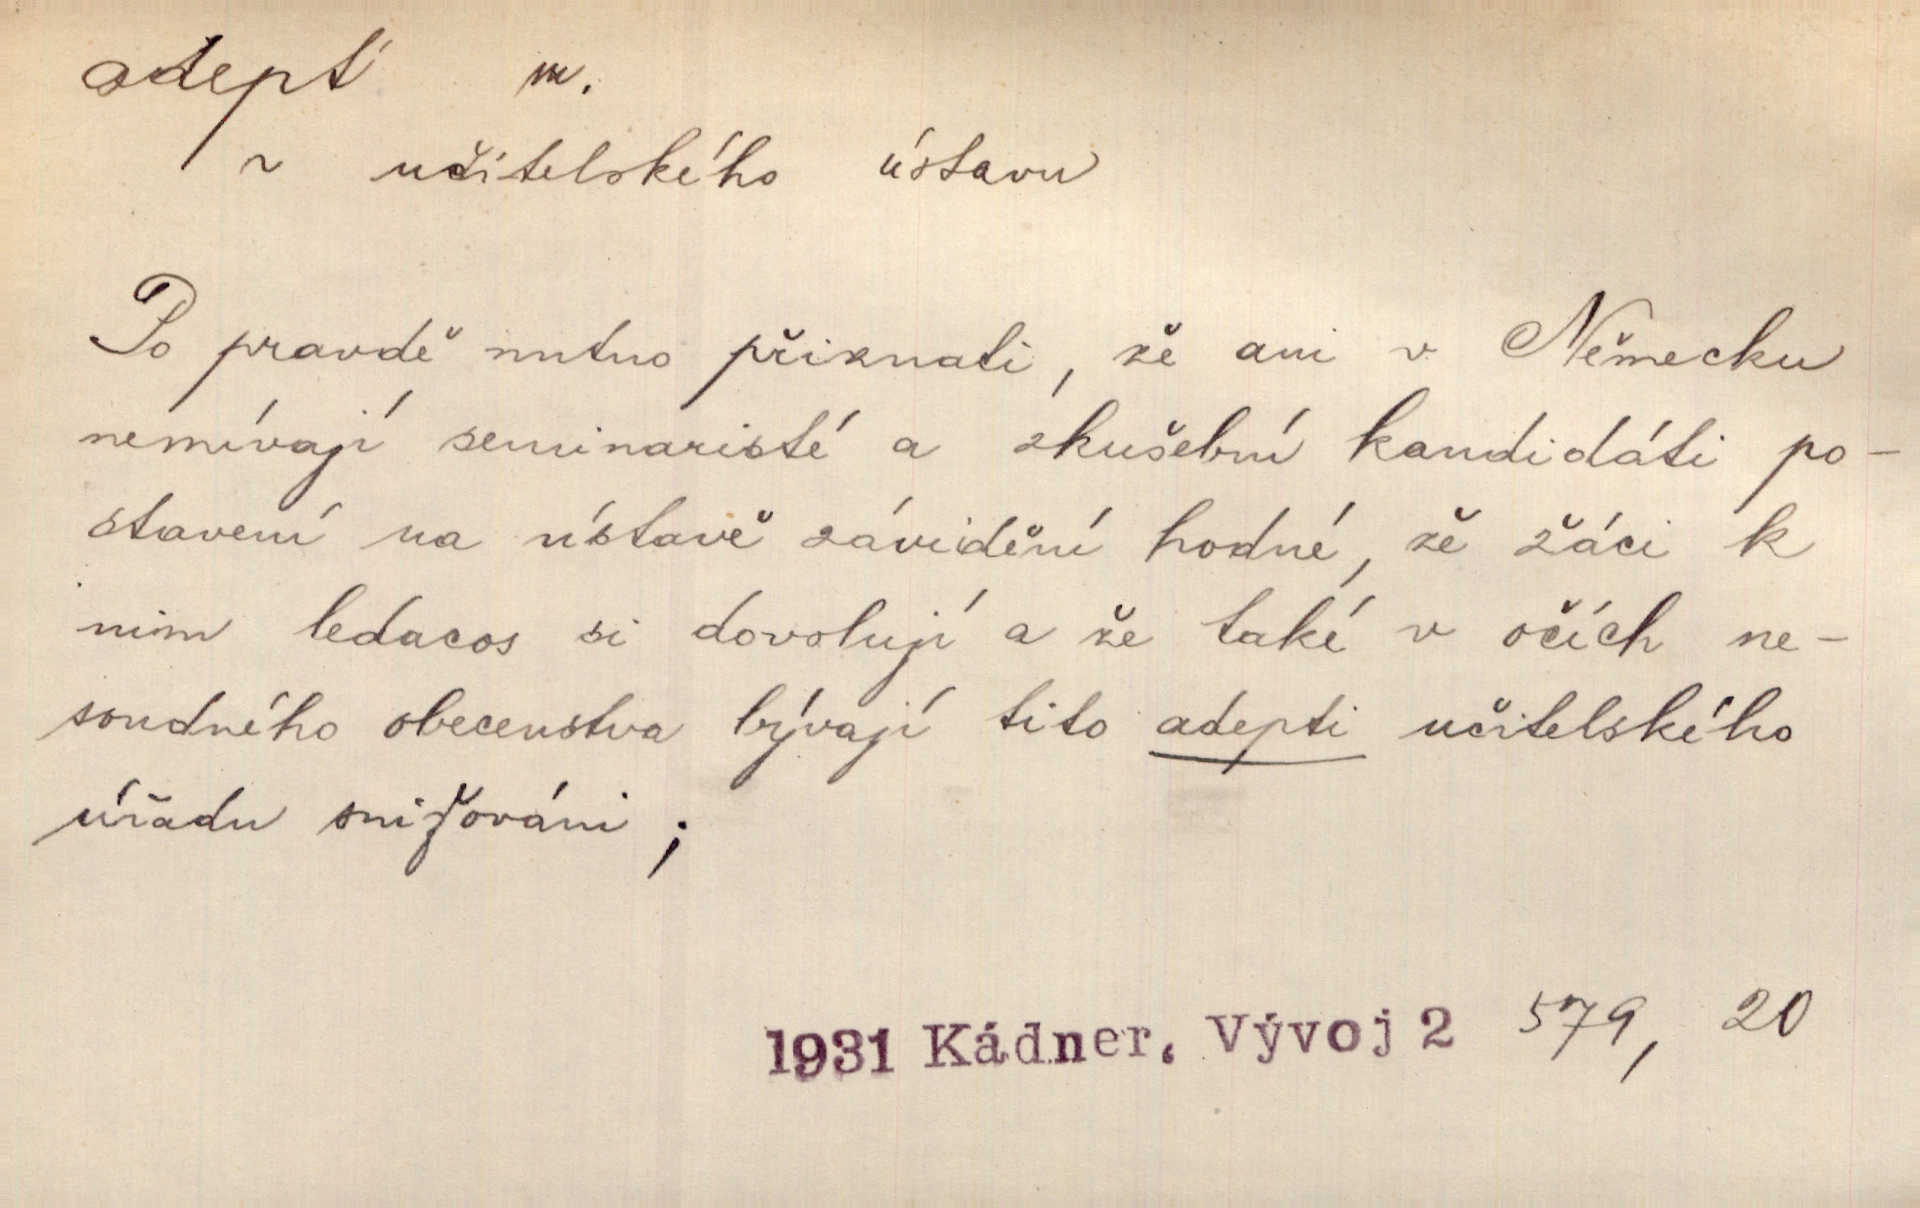 adept m.
~ učitelského ústavu
Po pravdě nutno přiznati, že ani v Německu
nemívají seminaristé a zkušební kandidáti po-
stavení na ústavě závidění hodné, že žáci k
nim ledacos si dovolují a že také v očích ne-
soudného obecenstva bývají tito adepti učitelského
úřadu snižováni;
1931 Kádner. Vývoj 2 579, 20